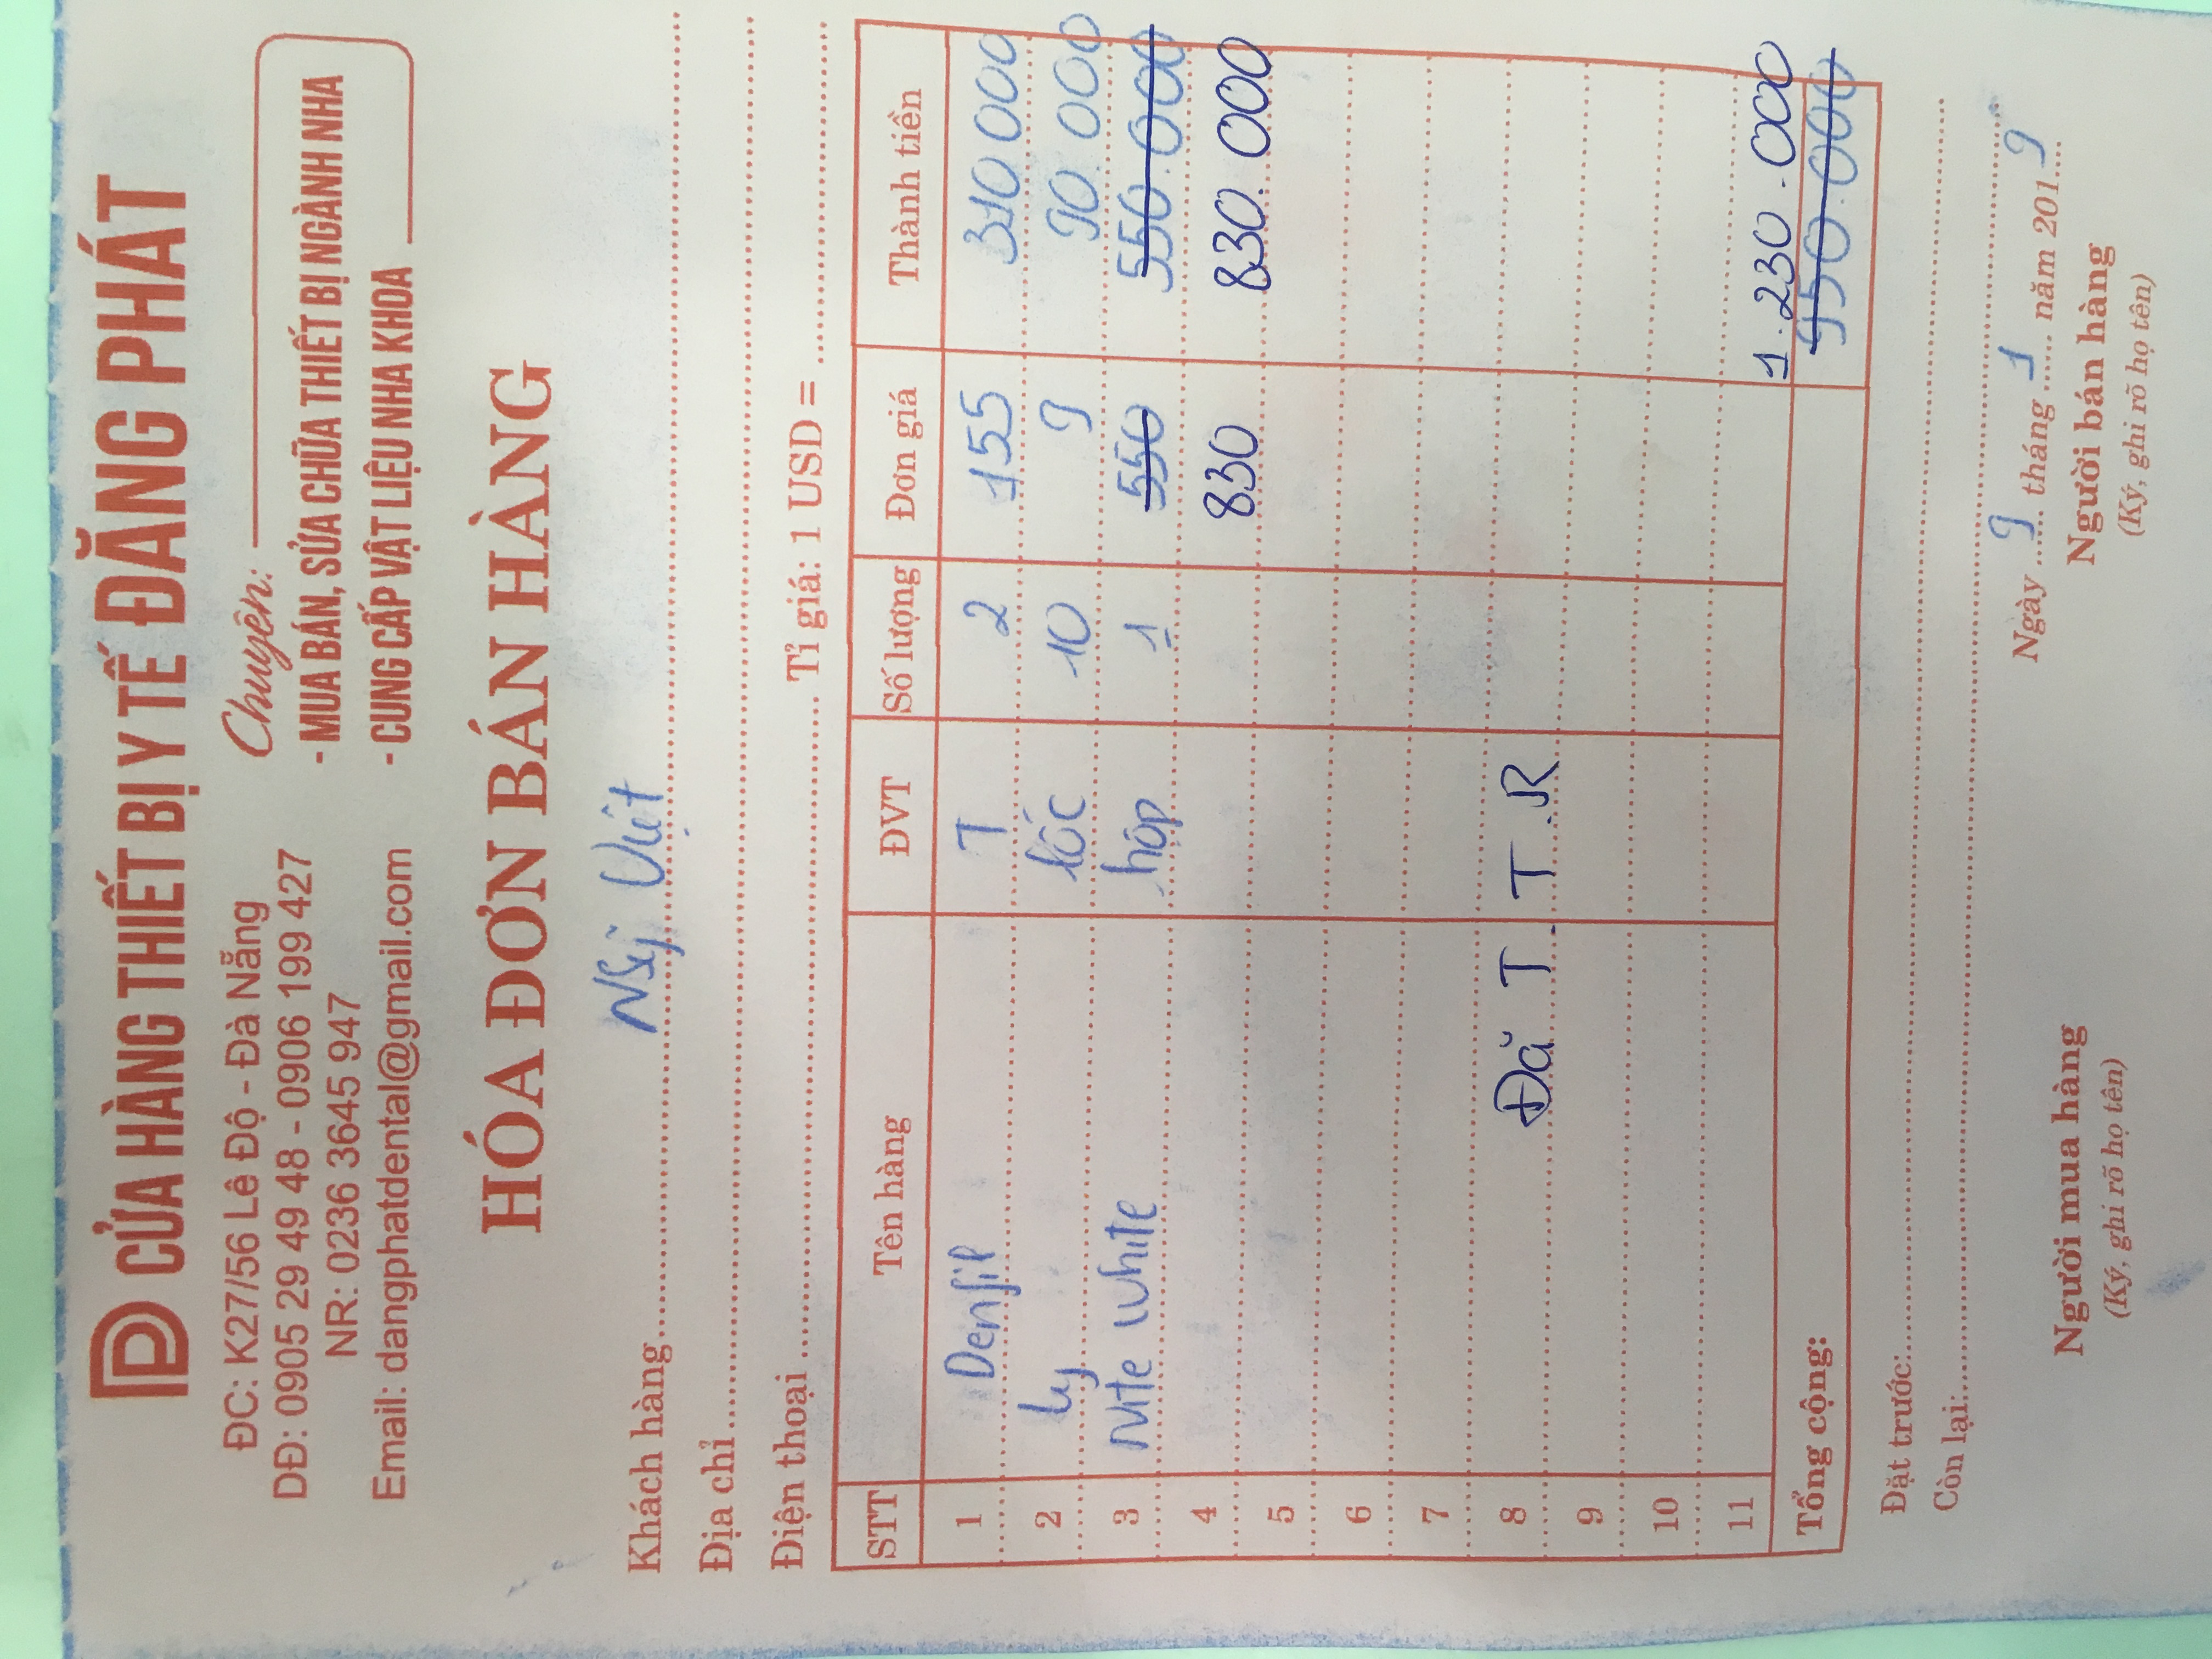 DP CỬA HÀNG THIẾT BỊ Y TẾ ĐĂNG PHÁT
ĐC: K27/56 Lê Độ - Đà Nẵng
DĐ: 0905 29 49 48 - 0906 199 427
NR: 0236 3645 947
Email: dangphatdental@gmail.com
Chuyên:
- MUA BÁN, SỬA CHỮA THIẾT BỊ NGÀNH NHA
- CUNG CẤP VẬT LIỆU NHA KHOA
HÓA ĐƠN BÁN HÀNG
Khách hàng Việt
Địa chỉ
Điện thoại Tỉ giá: 1 USD =
STT Tên hàng ĐVT Số lượng Đơn giá Thành tiền
1 Denfil T 2 155 310 000
2 Ly lốc 10 9 90.000
3 Nite White hộp 1 550 550.000
4 830 830.000
5
6
7
8 Đã T.T.R
9
10
11
1.230.000
Tổng cộng: 950.000
Đặt trước:
Còn lại:
Ngày 9 tháng 1 năm 2019
Người mua hàng
(Ký, ghi rõ họ tên)
Người bán hàng
(Ký, ghi rõ họ tên)